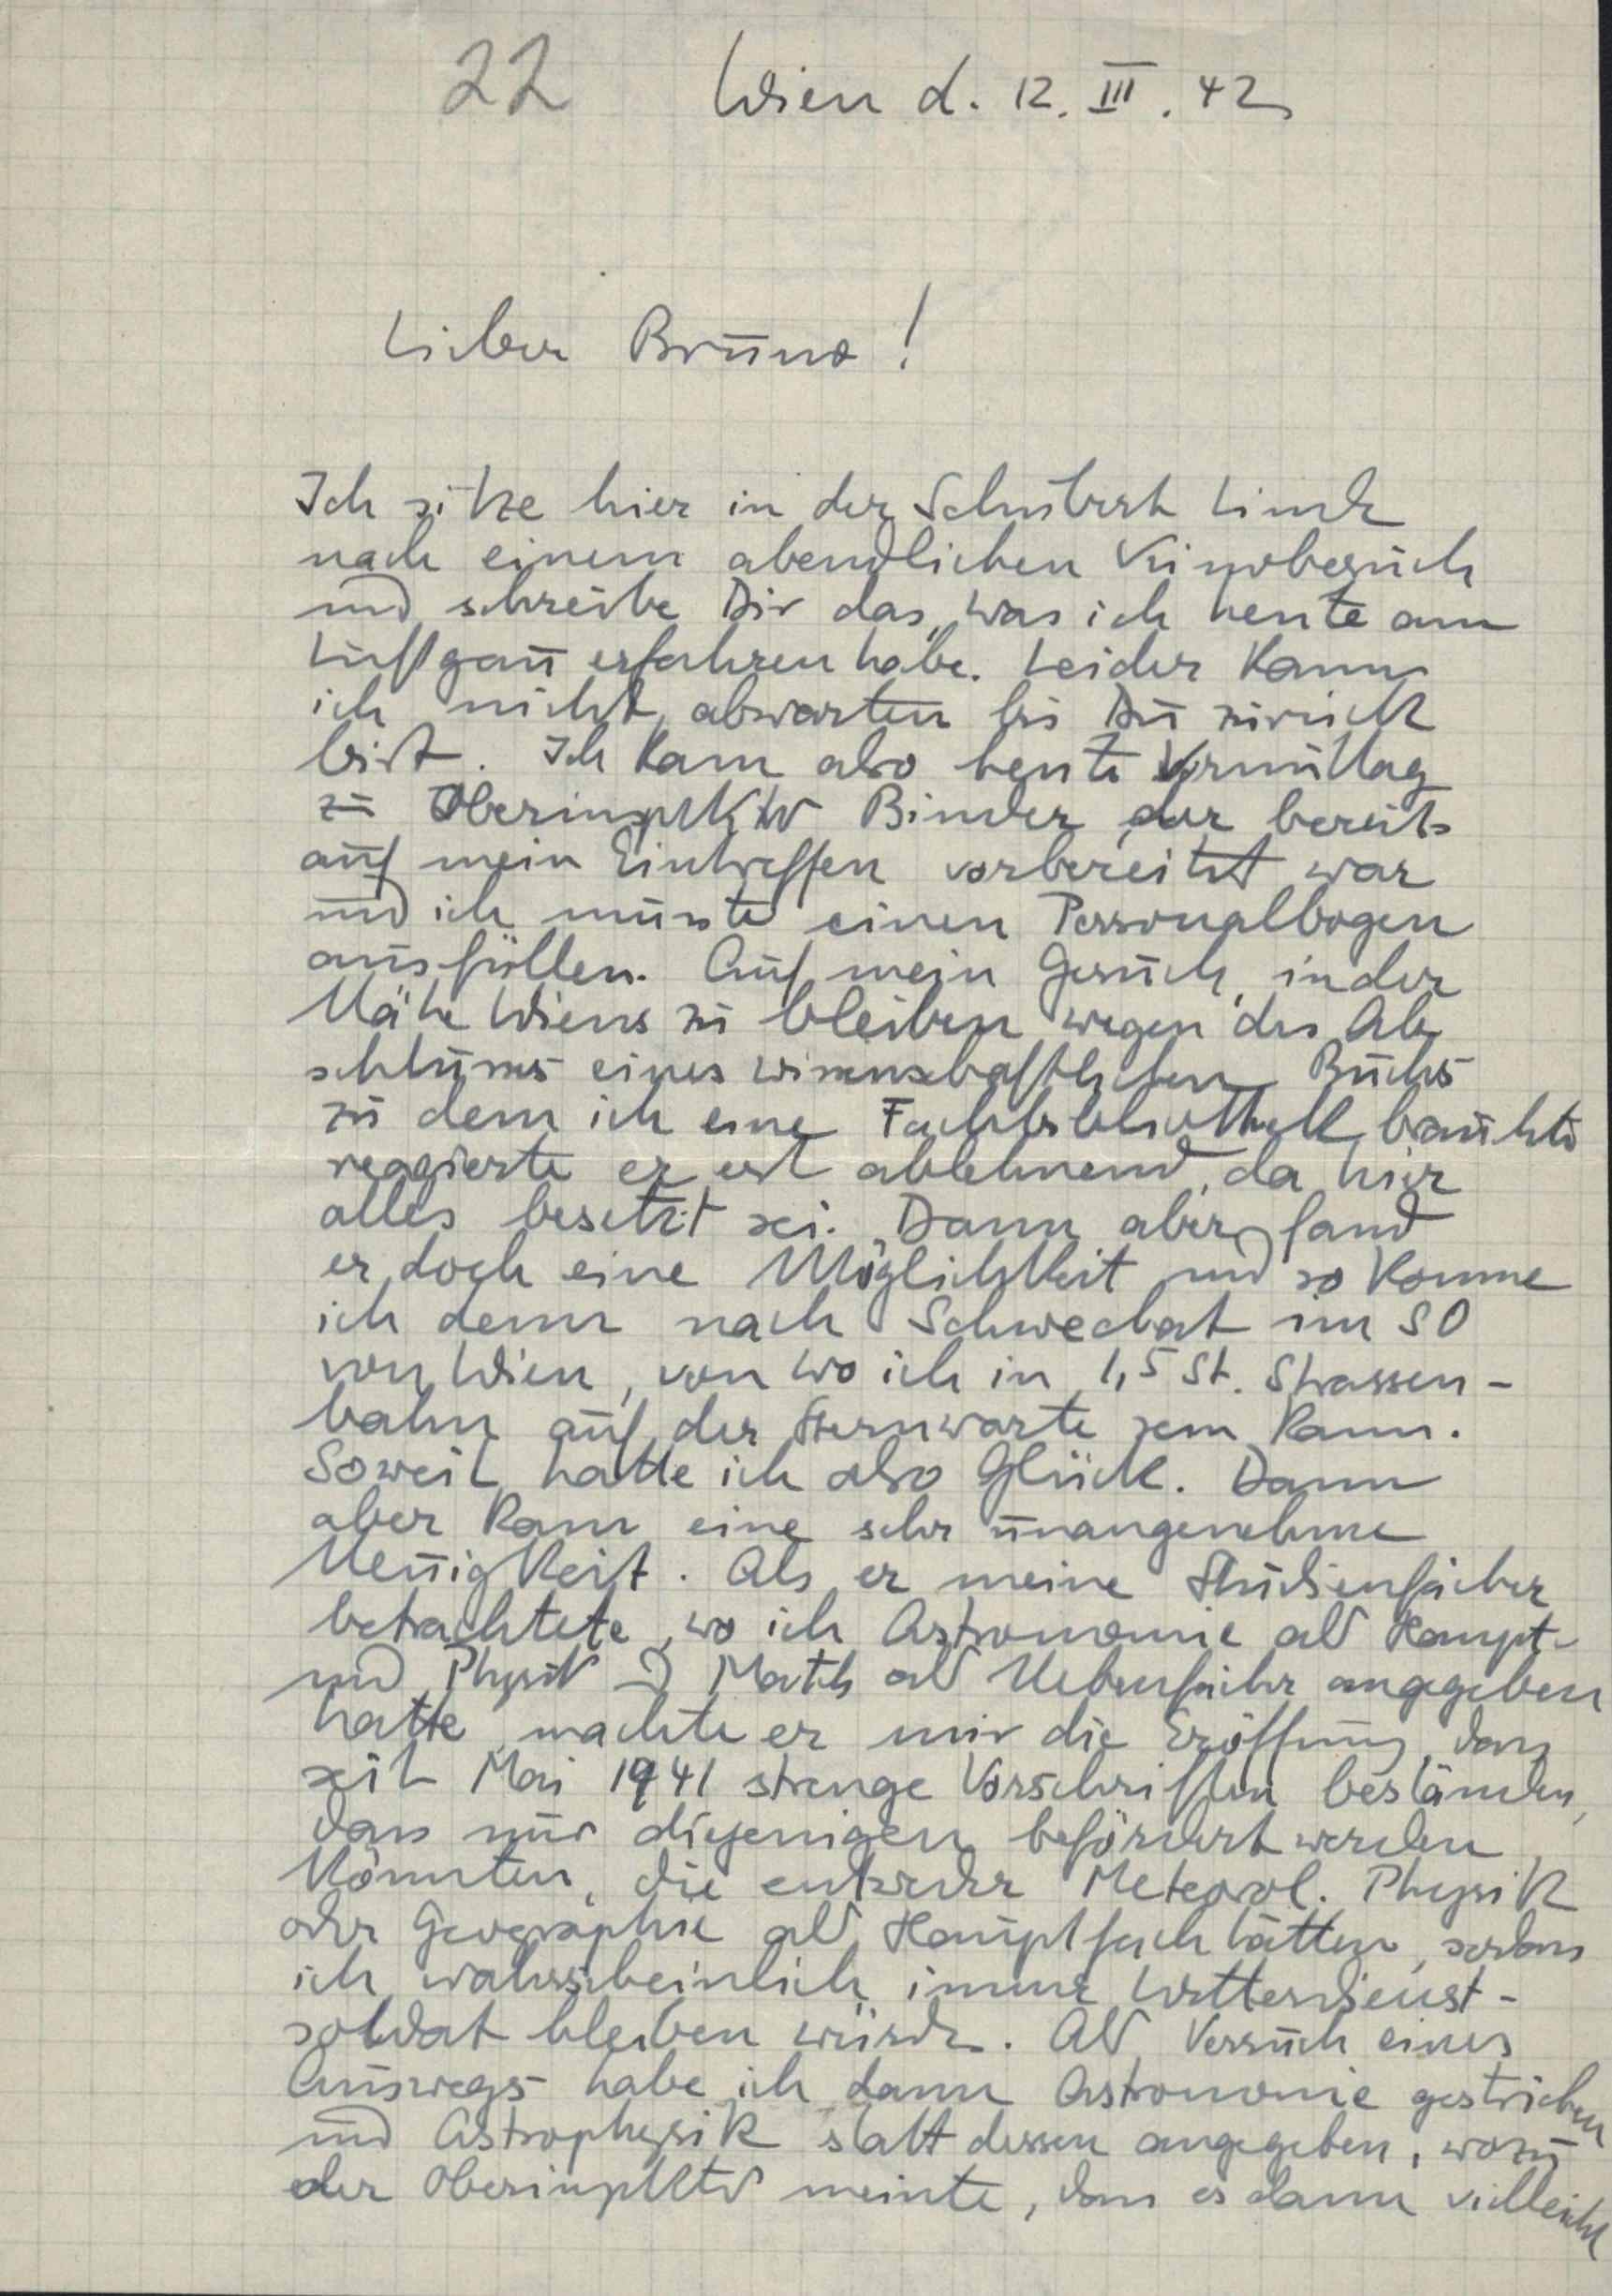 22 Wien d. 12. III. 42
Lieber Bruno!
Ich sitze hier in der Schubert Linde
nach einem abendlichen Kinobesuch
und schreibe Dir das, was ich heute am
Luftgau erfahren habe. Leider kann
ich nicht abwarten bis Du zurück
bist. Ich kam also heute Vormittag
zu Oberinspektor Binder, der bereits
auf mein Eintreffen vorbereitet war
und ich musste einen Personalbogen
ausfüllen. Auf mein Gesuch, in der
Nähe Wiens zu bleiben wegen des Ab
schlusses eines wissenschaftlichen Buchs
zu dem ich eine Fachbibliothek brauchte
reagierte er erst ablehnend, da hier
alles besetzt sei. Dann aber fand
er doch eine Möglichkeit und so komme
ich denn nach Schwechat im SO
von Wien, von wo ich in 1,5 St. Strassen-
bahn auf der Sternwarte sein kann.
Soweit hatte ich also Glück. Dann
aber kam eine sehr unangenehme
Neuigkeit. Als er meine Studienfächer
betrachtete, wo ich Astronomie als Haupt-
und Physik u Math als Nebenfächer angegeben
hatte, machte er mir die Eröffnung, dass
seit Mai 1941 strenge Vorschriften beständen,
dass nur diejenigen befördert werden
könnten, die entweder Meteorol. Physik
oder Geographie als Hauptfach hätten, sodass
ich wahrscheinlich immer Wetterdienst-
soldat bleiben würde. Als Versuch eines
Auswegs habe ich dann Astronomie gestrichen
und Astrophysik statt dessen angegeben, wozu
der Oberinspektor meinte, dass es dann vielleicht